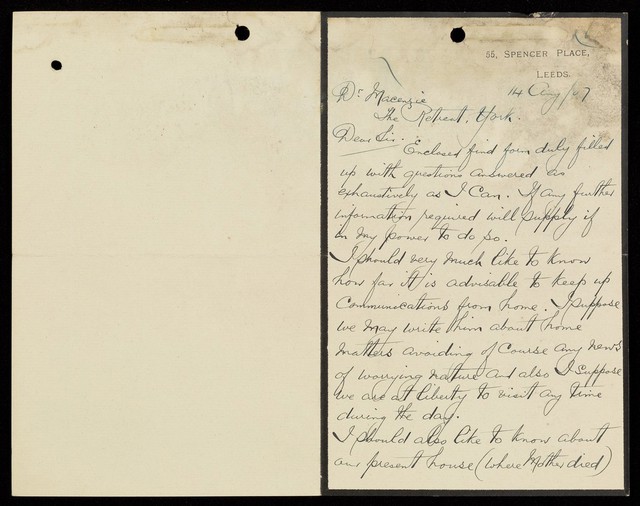 55, SPENCER PLACE,
LEEDS.
14 Aug/07
Dr Macenzie
The Retreat, York.
Dear Sir.
Enclosed find form duly filled
up with questions answered as
exhaustively as I can. If any further
information required will supply if
in my power to do so.
I should very much like to know
how far it is advisable to keep up
communications from home. I suppose
we may write him about home
matters avoiding of course any news
of worrying nature and also I suppose
we are at liberty to visit any time
during the day.
I should also like to know about
our present house (where Mother died)